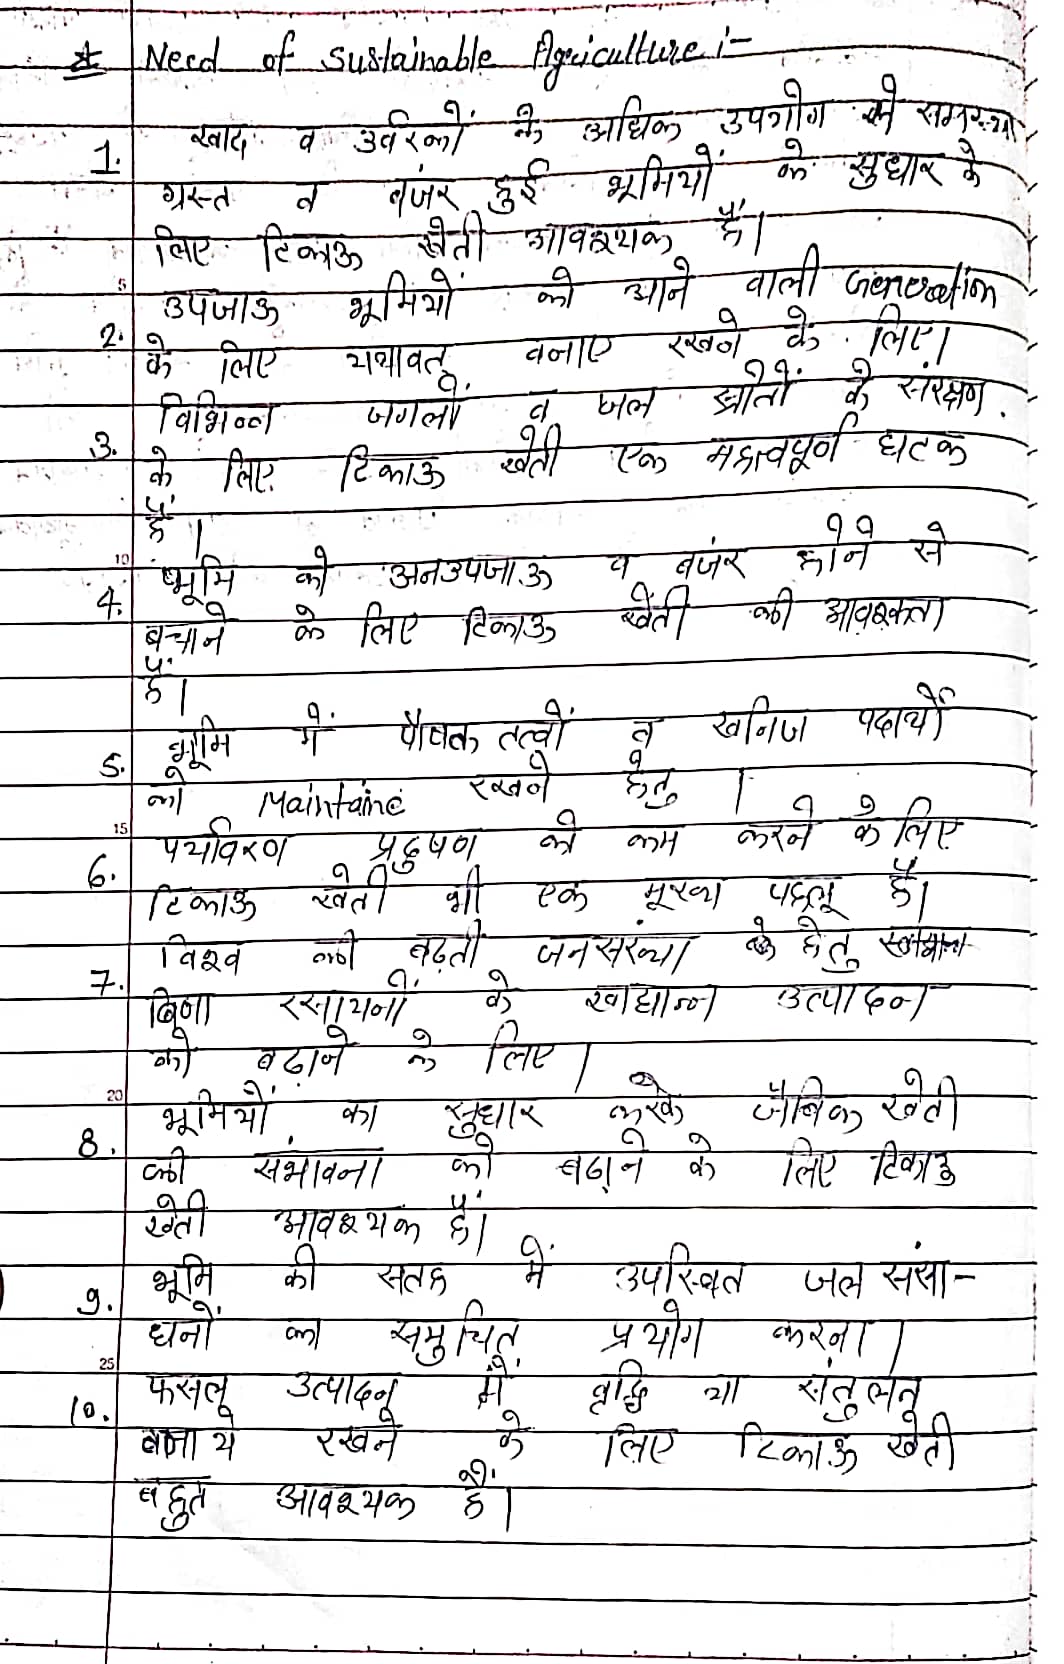 * Need of Sustainable Agriculture :-
1. खाद व उर्वरकों के अधिक उपयोग से समस्या
ग्रस्त व बंजर हुई भूमियों के सुधार के
लिए टिकाऊ खेती आवश्यक हैं।
5
2. उपजाऊ भूमियों को आने वाली Generation
के लिए यथावत् बनाए रखने के लिए।
3. विभिन्न जगलों व जल स्त्रोतों के संरक्षण
के लिए टिकाऊ खेती एक महत्वपूर्ण घटक
हैं।
10
4. भूमि को अनउपजाऊ व बंजर होने से
बचाने के लिए टिकाऊ खेती की आवश्कता
हैं।
5. भूमि में पोषक तत्वों व खनिज पदार्थो
को Maintaine रखने हेतु।
15
6. पर्यावरण प्रदुषण को कम करने के लिए
टिकाऊ खेती भी एक मूख्य पहलू हैं।
7. विश्व की बढ़ती जनसंख्या के हेतु
बिना रसायनों के खाद्यान्न उत्पादन
को बढाने के लिए।
20
8. भूमियों का सुधार करके जैविक खेती
की संभावना को बढाने के लिए टिकाउ
खेती आवश्यक हैं।
9. भूमि की सतह में उपस्थित जल संसा-
धनों का समुचित प्रयोग करना।
25
10. फसल उत्पादन में वृद्धि या संतुलन
बनाये रखने के लिए टिकाऊ खेती
बहुत आवश्यक हैं।